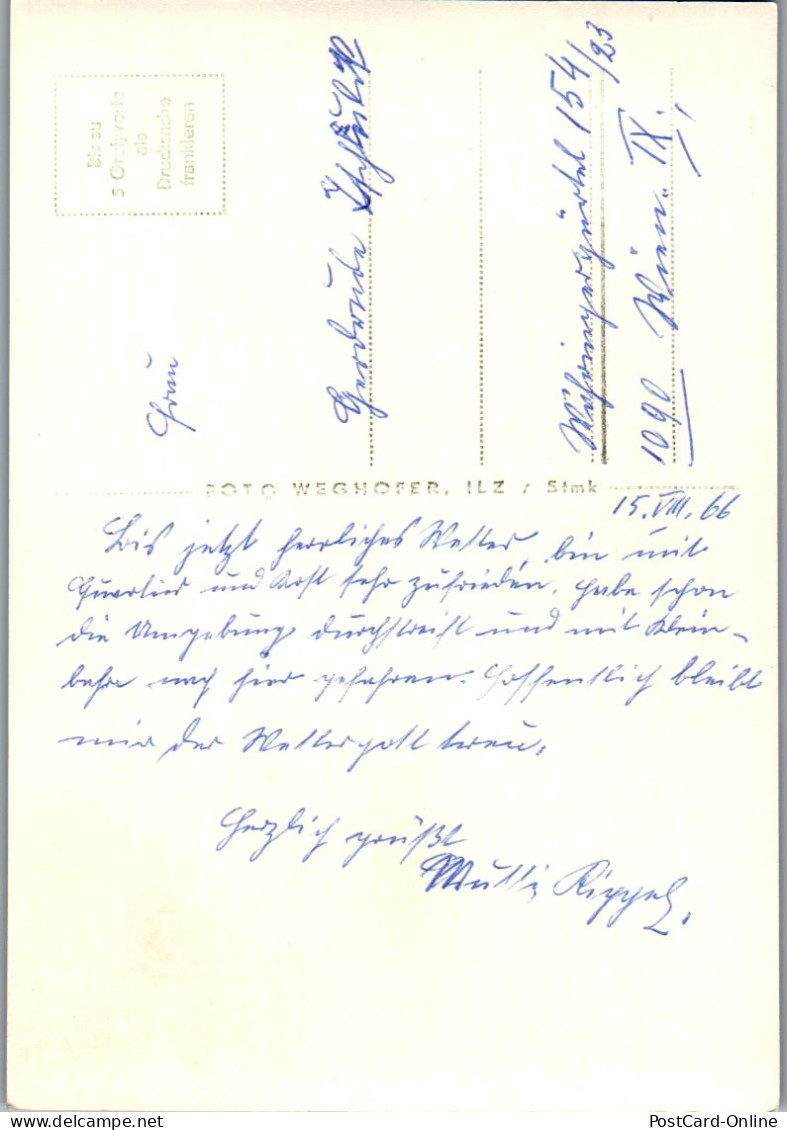 Bis zu
5 Grußworte
als
Drucksache
frankieren
Frau
Gertrude
Währingergürtel 154/23
1090 Wien IX.
FOTO WEGHOFER, ILZ / Stmk
15.VIII.66
Bis jetzt herrliches Wetter, bin mit
Quartier und Kost sehr zufrieden. Habe schon
die Umgebung durchstreift und mit Klein-
bahn nach hier gefahren. Hoffentlich bleibt
mir der Wettergott treu.
Herzlich grüßt
Mutti Rippel.
PostCard-Online